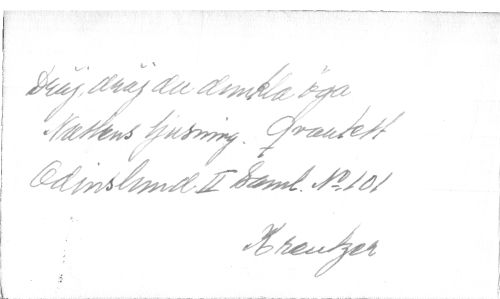 Dröj, dröj du dunkla öga
Nattens tjusning. Qvartett
Odinslund II Saml. No 101
Kreutzer